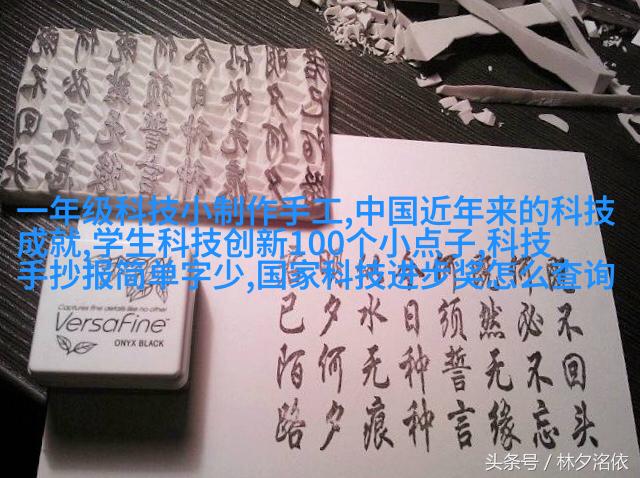 一年级科技小制作手工,中国近年来的科技
成就,学生科技创新100个小点子,科技
手抄报简单字少,国家科技进步奖怎么查询
Captures fine details like no other
VersaFine
ONYX BLACK
既不回头
何必不忘
既然无缘
何须誓言
今日种种
似水无痕
明夕何夕
君已陌路
头条号／林夕洺依